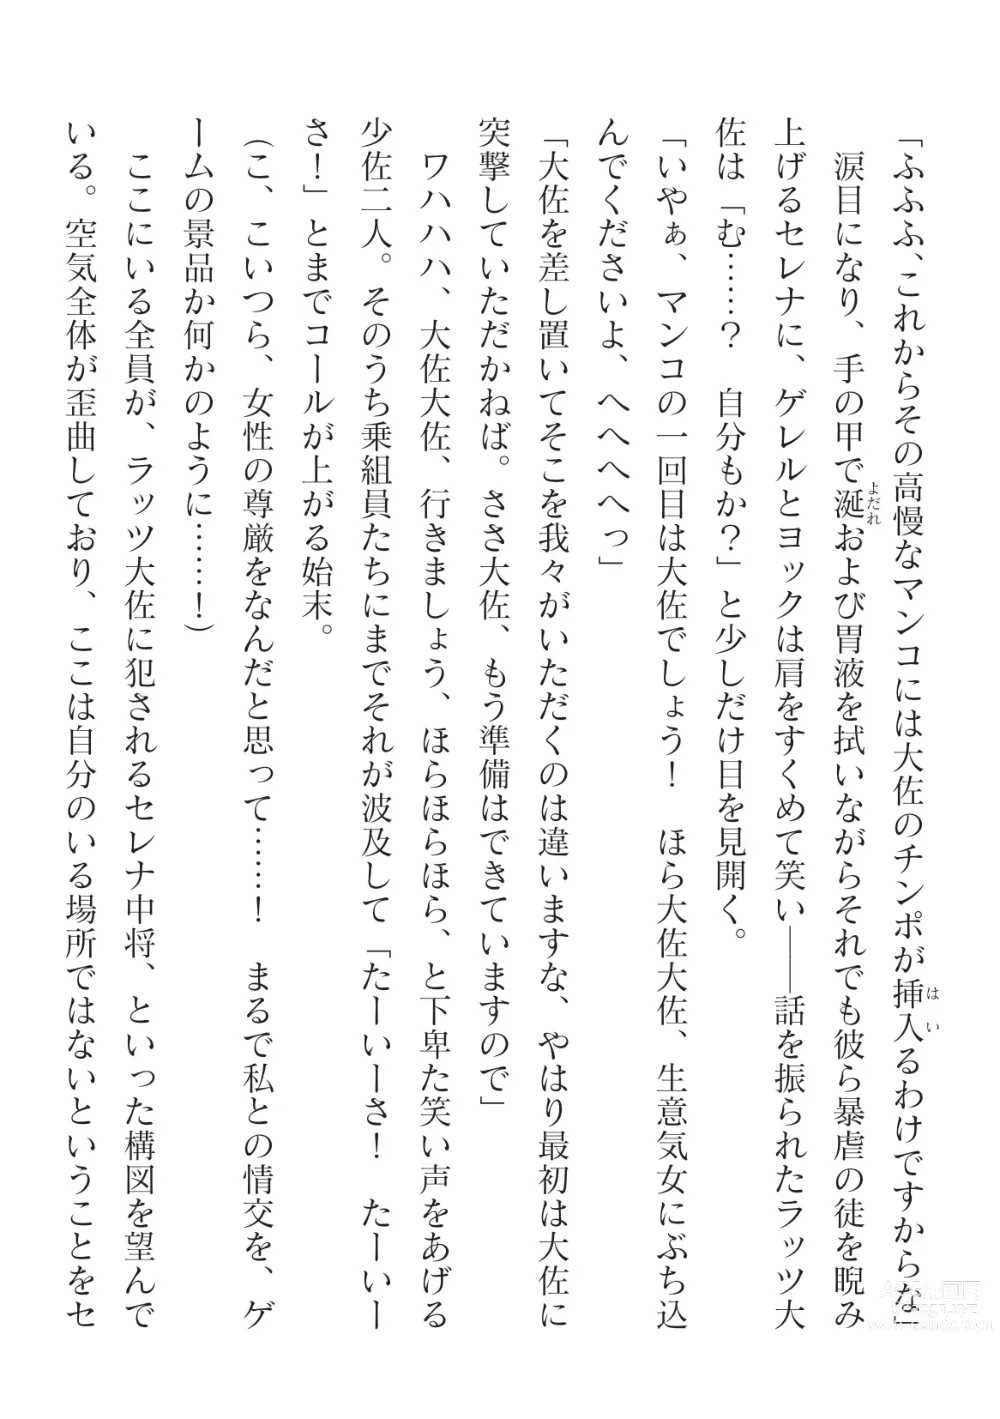 「ふふふ、これからその高慢なマンコには大佐のチンポが挿入るわけですからな」
はい
涙目になり、手の甲で涎および胃液を拭いながらそれでも彼ら暴虐の徒を睨み
よだれ
上げるセレナに、ゲレルとヨックは肩をすくめて笑い――話を振られたラッツ大
佐は「む……？　自分もか？」と少しだけ目を見開く。
「いやぁ、マンコの一回目は大佐でしょう！　ほら大佐大佐、生意気女にぶち込
んでくださいよ、へへへへっ」
「大佐を差し置いてそこを我々がいただくのは違いますな、やはり最初は大佐に
突撃していただかねば。ささ大佐、もう準備はできていますので」
ワハハハ、大佐大佐、行きましょう、ほらほらほら、と下卑た笑い声をあげる
少佐二人。そのうち乗組員たちにまでそれが波及して「たーいーさ！　たーいー
さ！」とまでコールが上がる始末。
（こ、こいつら、女性の尊厳をなんだと思って……！　まるで私との情交を、ゲ
ームの景品か何かのように……！）
ここにいる全員が、ラッツ大佐に犯されるセレナ中将、といった構図を望んで
いる。空気全体が歪曲しており、ここは自分のいる場所ではないということをセ